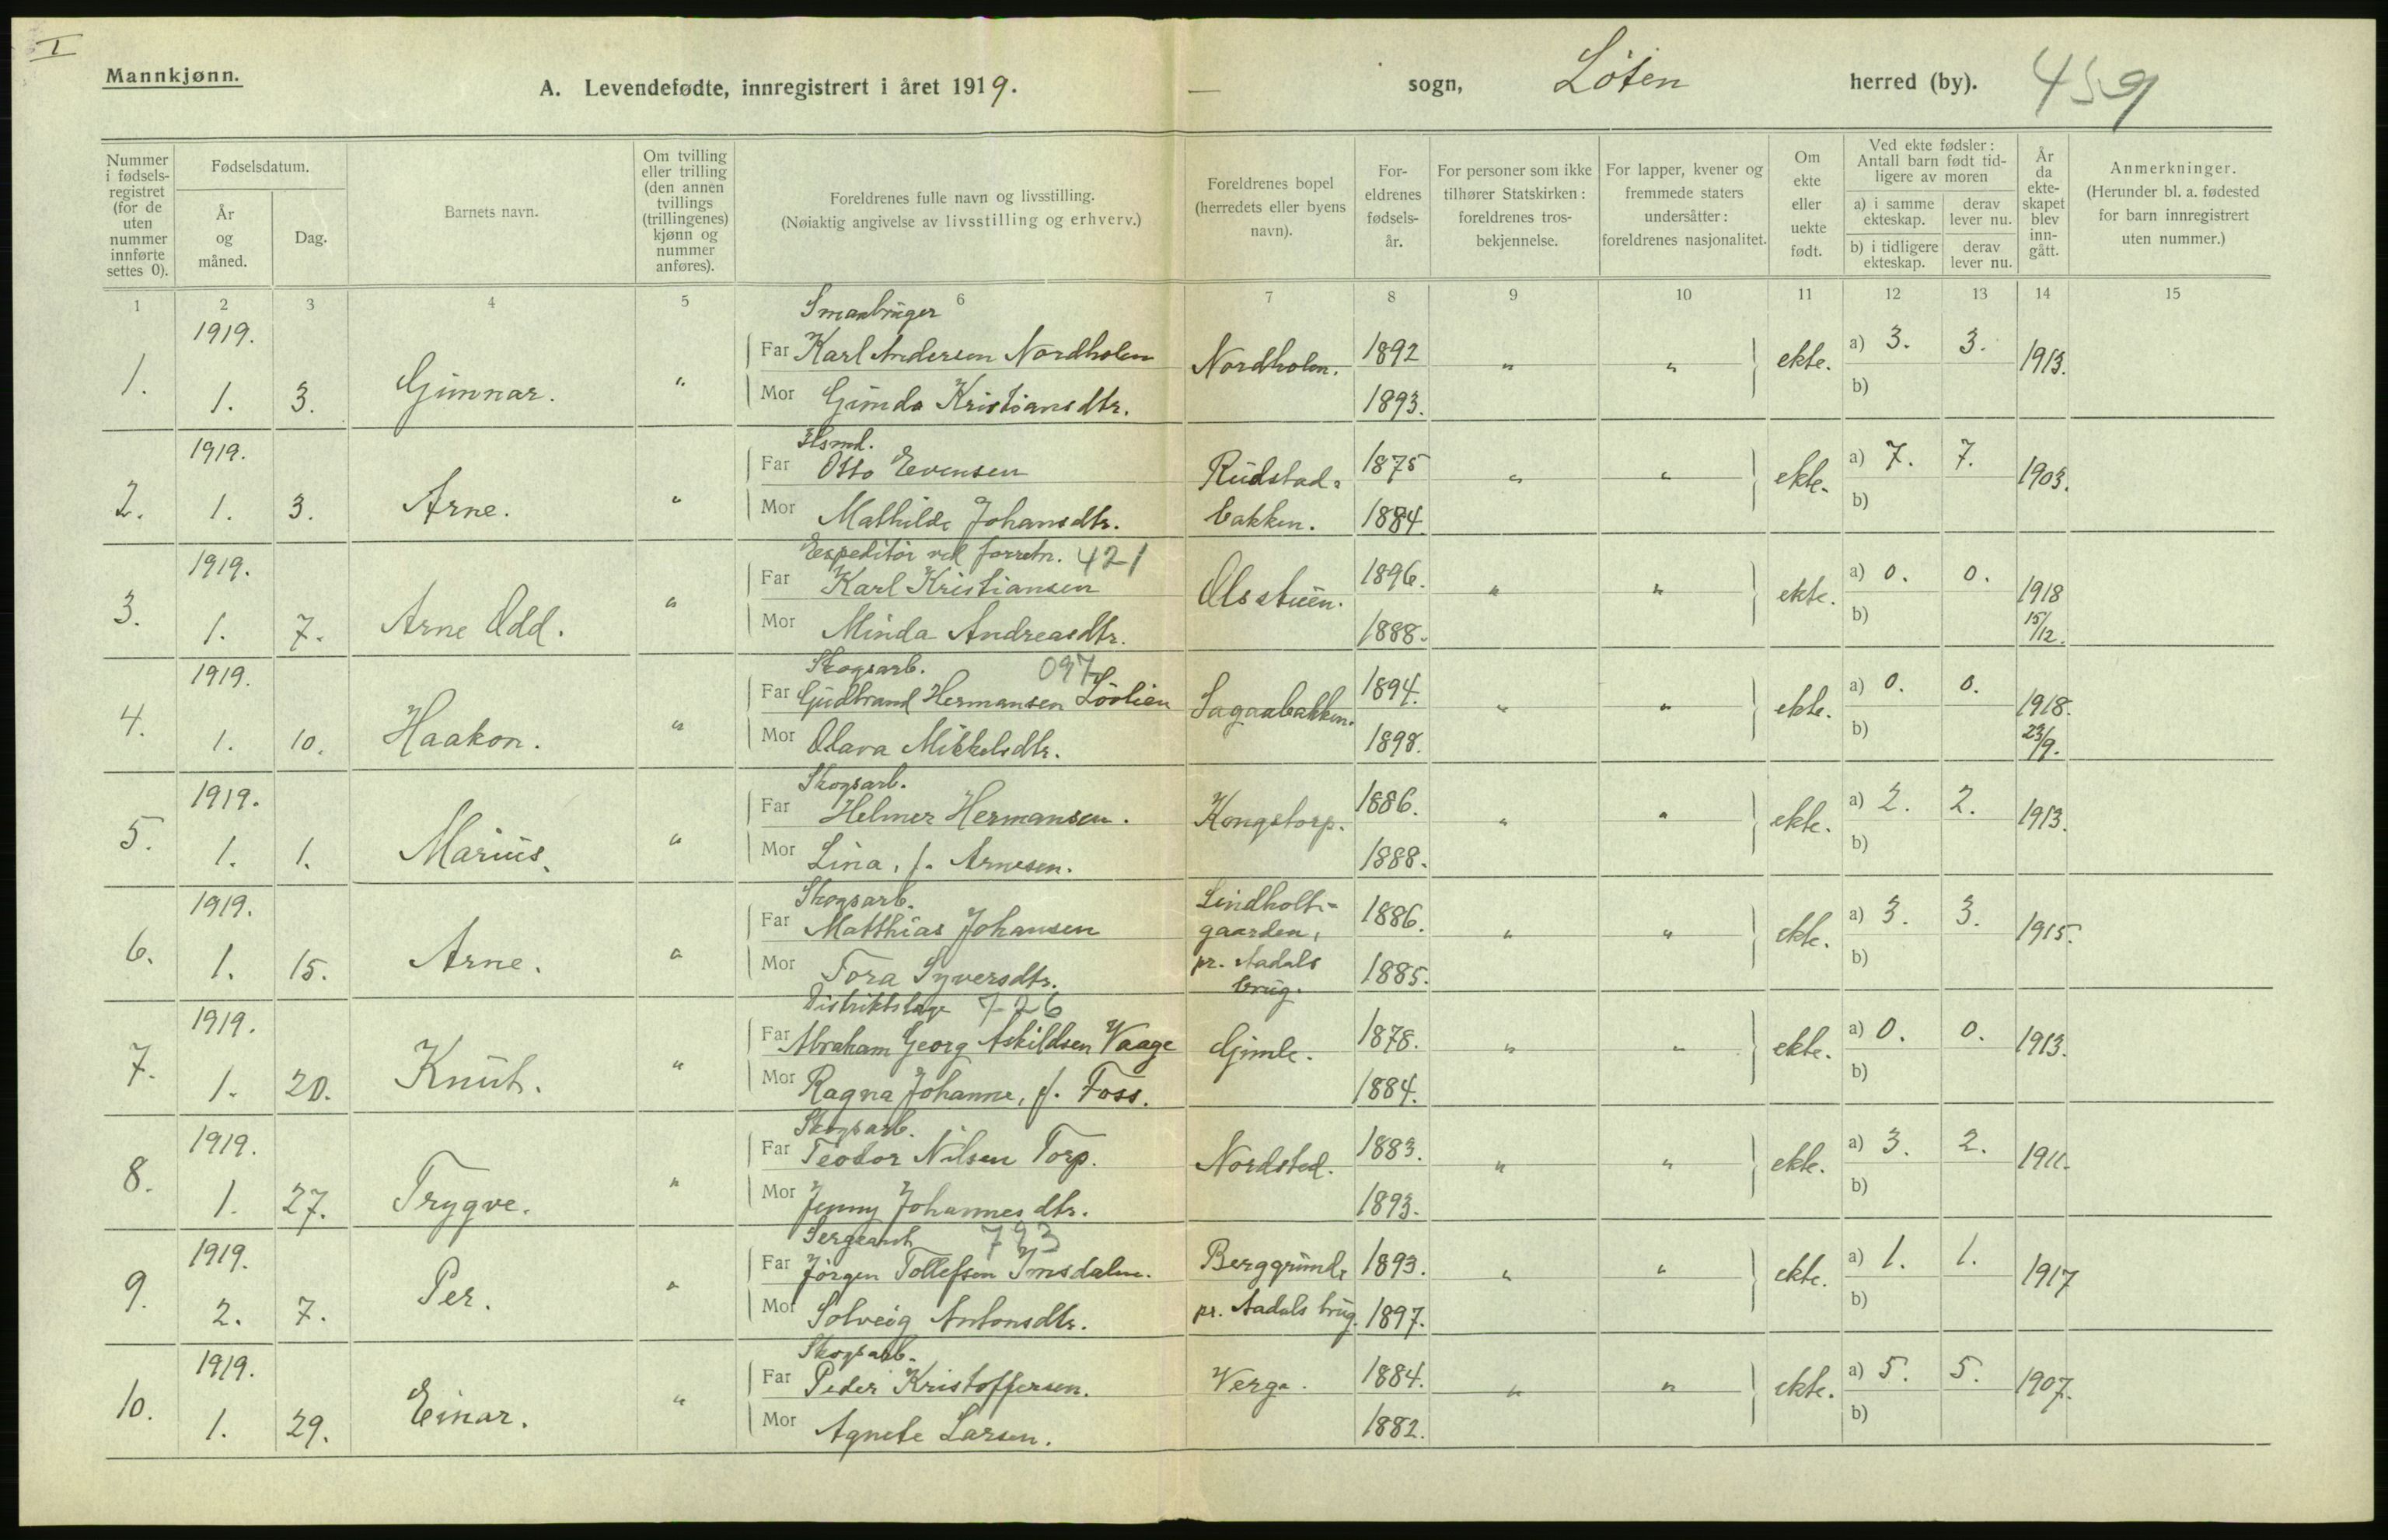 I
Mannkjønn.
A. Levendefødte, innregistrert i året 1919.
— sogn, Löten herred (by). 459
Nummer i fødselsregistret (for de uten nummer innførte settes 0).
Fødselsdatum.
År og måned.
Dag.
Barnets navn.
Om tvilling eller trilling (den annen tvillings (trillingenes) kjønn og nummer anføres).
Foreldrenes fulle navn og livsstilling.
(Nøiaktig angivelse av livsstilling og erhverv.)
Foreldrenes bopel (herredets eller byens navn).
Foreldrenes fødselsår.
For personer som ikke tilhører Statskirken: foreldrenes trosbekjennelse.
For lapper, kvener og fremmede staters undersåtter: foreldrenes nasjonalitet.
Om ekte eller uekte født.
Ved ekte fødsler: Antall barn født tidligere av moren
a) i samme ekteskap.
derav lever nu.
b) i tidligere ekteskap.
derav lever nu.
År da ekteskapet blev inngått.
Anmerkninger.
(Herunder bl. a. fødested for barn innregistrert uten nummer.)
1 2 3 4 5 6 7 8 9 10 11 12 13 14 15
Smaabruger
1919. Far Karl Andersen Nordholen Nordholen. 1892 " " ekte. a) 3. 3. 1913.
1. 1. 3. Gunnar. " Mor Gunda Kristiansdtr. 1893. b)
Hsmd.
1919. Far Otto Evensen Rudstad- 1875 " " ekte. a) 7. 7. 1903.
2. 1. 3. Arne. " Mor Mathilde Johansdtr. bakken. 1884. b)
Expeditör ved forretn. 421
1919. Far Karl Kristiansen Olsstuen. 1896. " " ekte. a) 0. 0. 1918
3. 1. 7. Arne Odd. " Mor Minda Andreasdtr. 1888. b) 15/12.
Skogsarb. 097
1919. Far Gudbrand Hermansen Lövlien Sagaabakken. 1894. " " ekte. a) 0. 0. 1918.
4. 1. 10. Haakon. " Mor Olava Mikkelsdtr. 1898. b) 23/9.
Skogsarb.
1919. Far Helmer Hermansen. Kongstorp. 1886. " " ekte. a) 2. 2. 1913.
5. 1. 1. Marius. " Mor Lina, f. Arnesen. 1888. b)
Skogsarb. Lindholt-
1919. Far Matthias Johansen gaarden, 1886. " " ekte. a) 3. 3. 1915.
6. 1. 15. Arne. " Mor Tora Syversdtr. pr. Aadals brug. 1885. b)
Distriktslæge 726
1919. Far Abraham Georg Askildsen Vaage Gimle. 1878. " " ekte. a) 0. 0. 1913.
7. 1. 20. Knut. " Mor Ragna Johanne, f. Foss. 1884. b)
Skogsarb.
1919. Far Teodor Nilsen Torp. Nordsted. 1883. " " ekte. a) 3. 2. 1911.
8. 1. 27. Trygve. " Mor Jenny Johannesdtr. 1893. b)
Sergeant 793
1919. Far Jörgen Tollefsen Imsdalen. Berggrund, 1893. " " ekte. a) 1. 1. 1917
9. 2. 7. Per. " Mor Solveig Antonsdtr. pr. Aadals brug. 1897. b)
Skogsarb.
1919. Far Peder Kristoffersen. Verga. 1884. " " ekte. a) 5. 5. 1907.
10. 1. 29. Einar. " Mor Agnete Larsen. 1882. b)